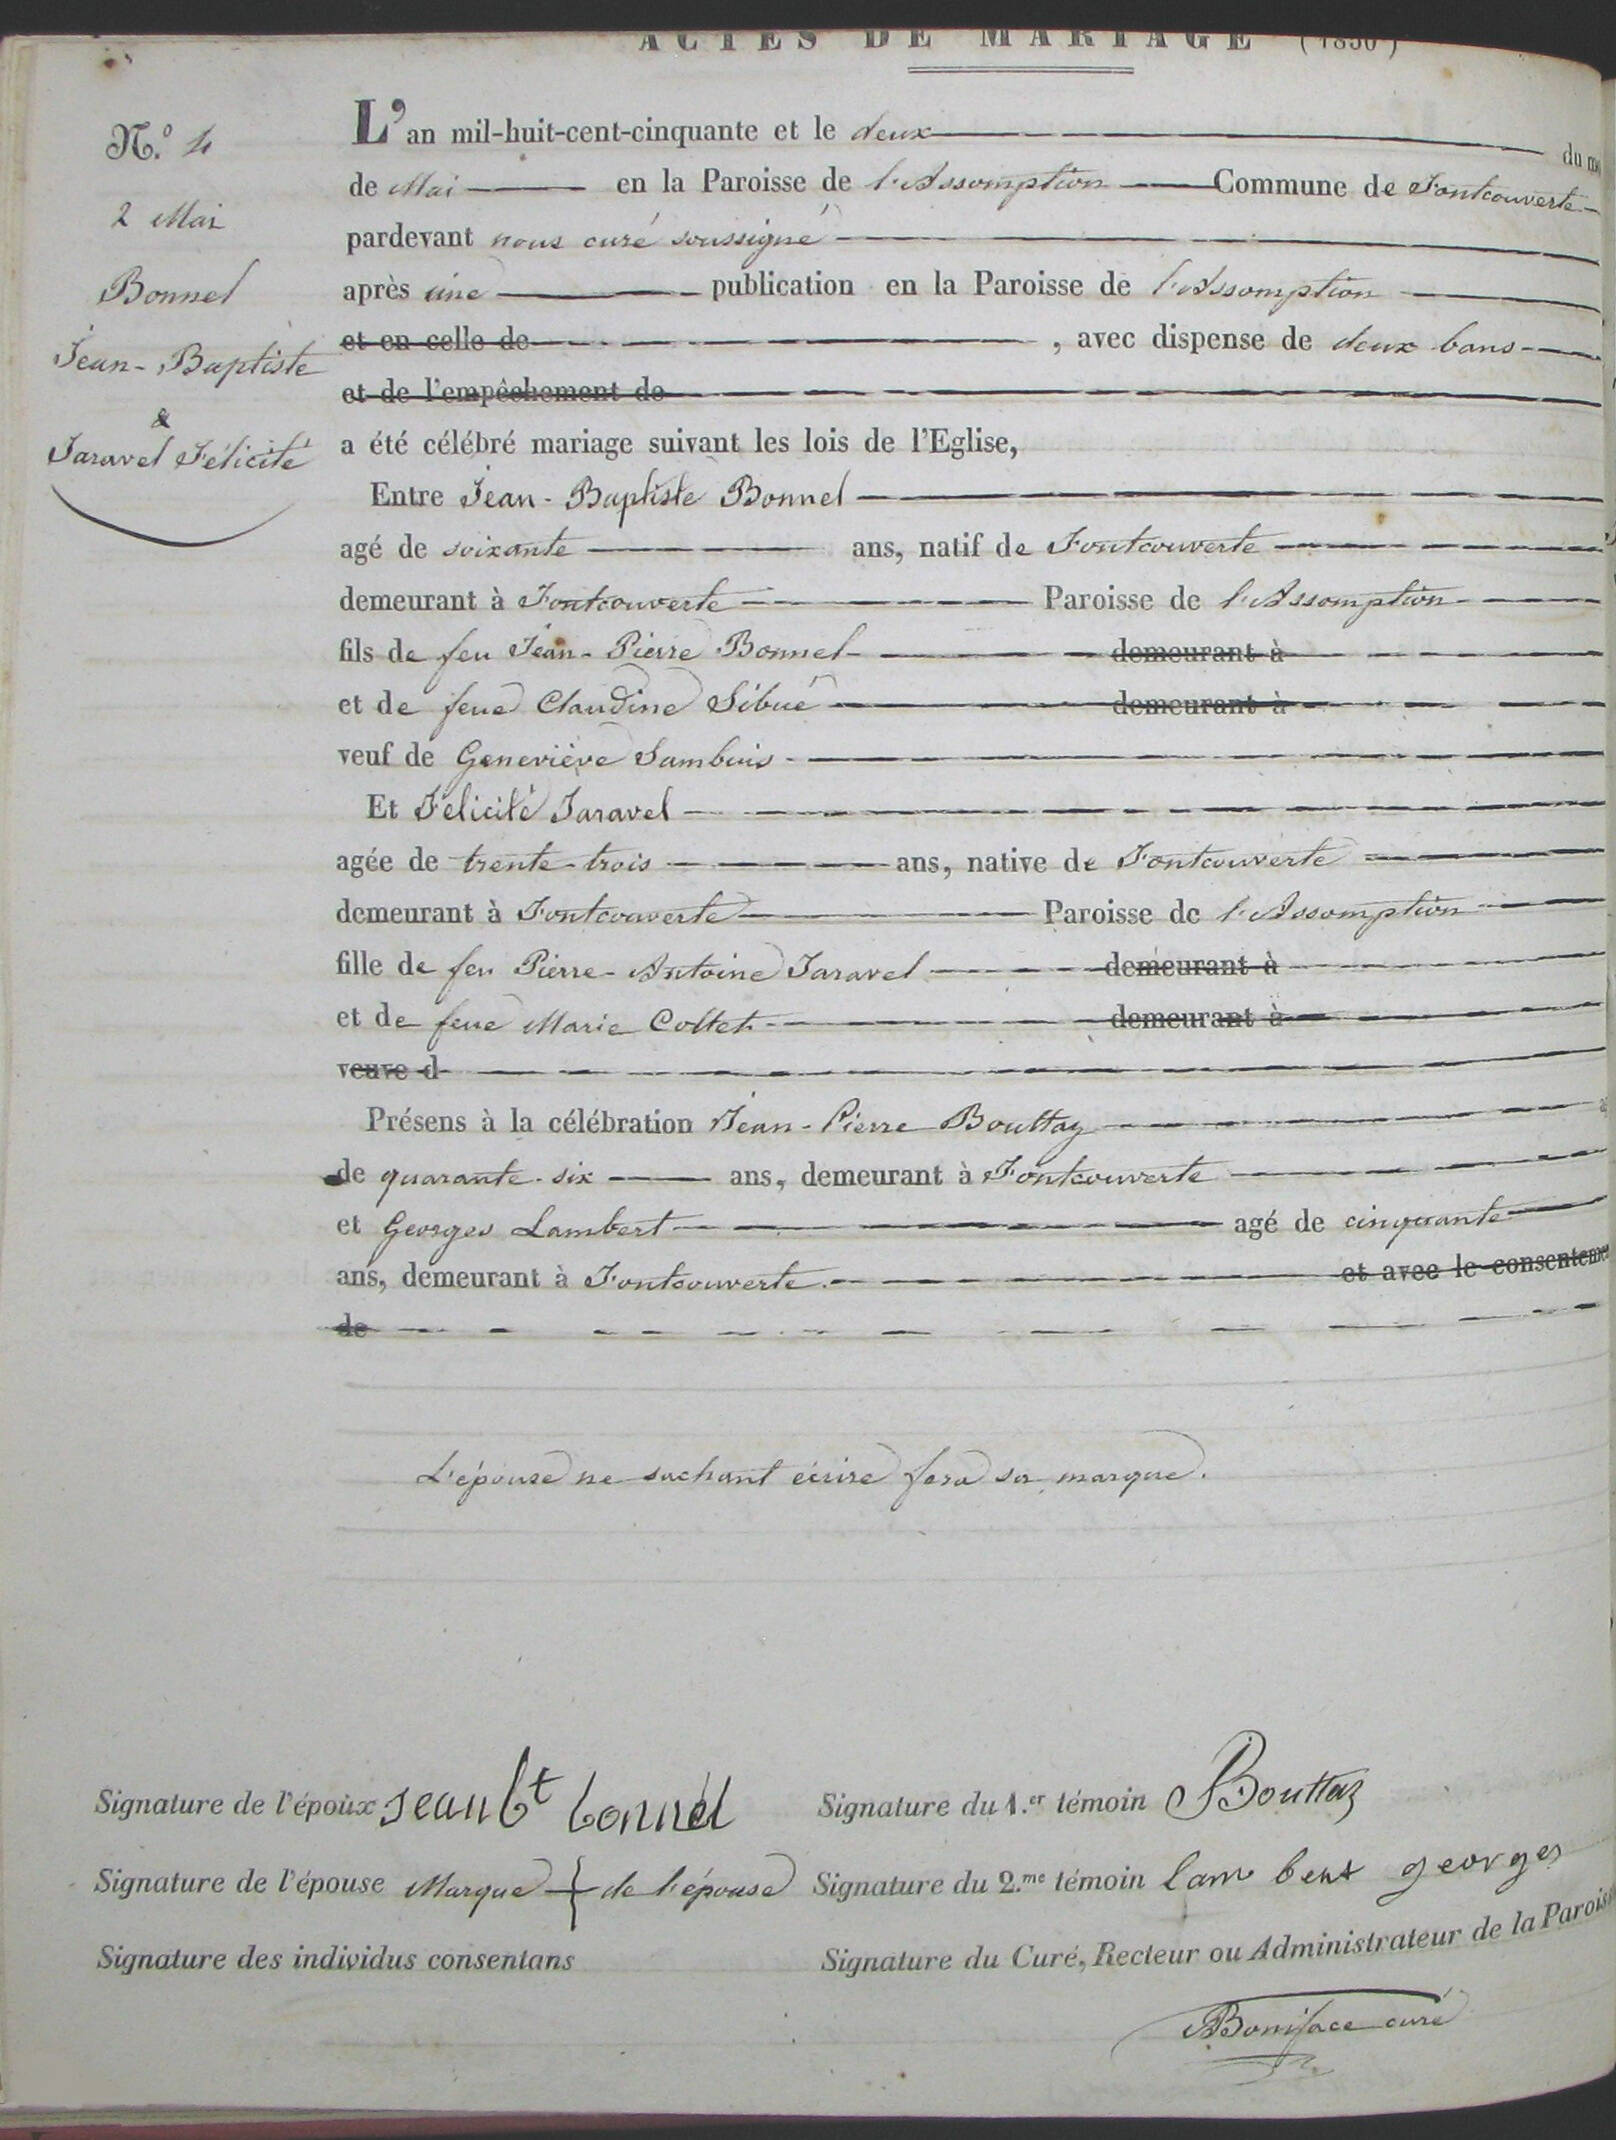 ACTES DE MARIAGE (1850)
N.º 4
2 Mai
Bonnel
Jean-Baptiste
&
Jaravel Félicité
L'an mil-huit-cent-cinquante et le deux du mo
de Mai en la Paroisse de l'Assomption Commune de Fontcouverte
pardevant nous curé soussigné
après une publication en la Paroisse de l'Assomption
et en celle de , avec dispense de deux bans
et de l'empêchement de
a été célébré mariage suivant les lois de l'Eglise,
Entre Jean-Baptiste Bonnel
agé de soixante ans, natif de Fontcouverte
demeurant à Fontcouverte Paroisse de l'Assomption
fils de feu Jean-Pierre Bonnel demeurant à
et de feue Claudine Sibué demeurant à
veuf de Geneviève Sambuis
Et Félicité Jaravel
agée de trente-trois ans, native de Fontcouverte
demeurant à Fontcouverte Paroisse de l'Assomption
fille de feu Pierre-Antoine Jaravel demeurant à
et de feue Marie Collet demeurant à
veuve d
Présens à la célébration Jean-Pierre Bouttaz
de quarante-six ans, demeurant à Fontcouverte
et Georges Lambert agé de cinquante
ans, demeurant à Fontcouverte. et avec le consenteme
de
L'épouse ne sachant écrire fera sa marque.
Signature de l'époux Jean bt bonnel
Signature du 1.er témoin Bouttaz
Signature de l'épouse Marque + de l'épouse
Signature du 2.me témoin lambert georges
Signature des individus consentans
Signature du Curé, Recteur ou Administrateur de la Paroiss
Boniface curé